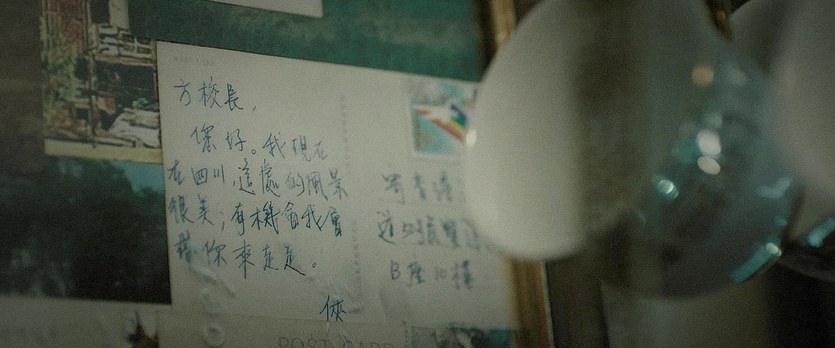 方校長，
你好。我現在
在四川，這處的風景
很美；有機會我會
帶你來走走。
俠
寄香港
道50號雙
B座10樓
POST CARD